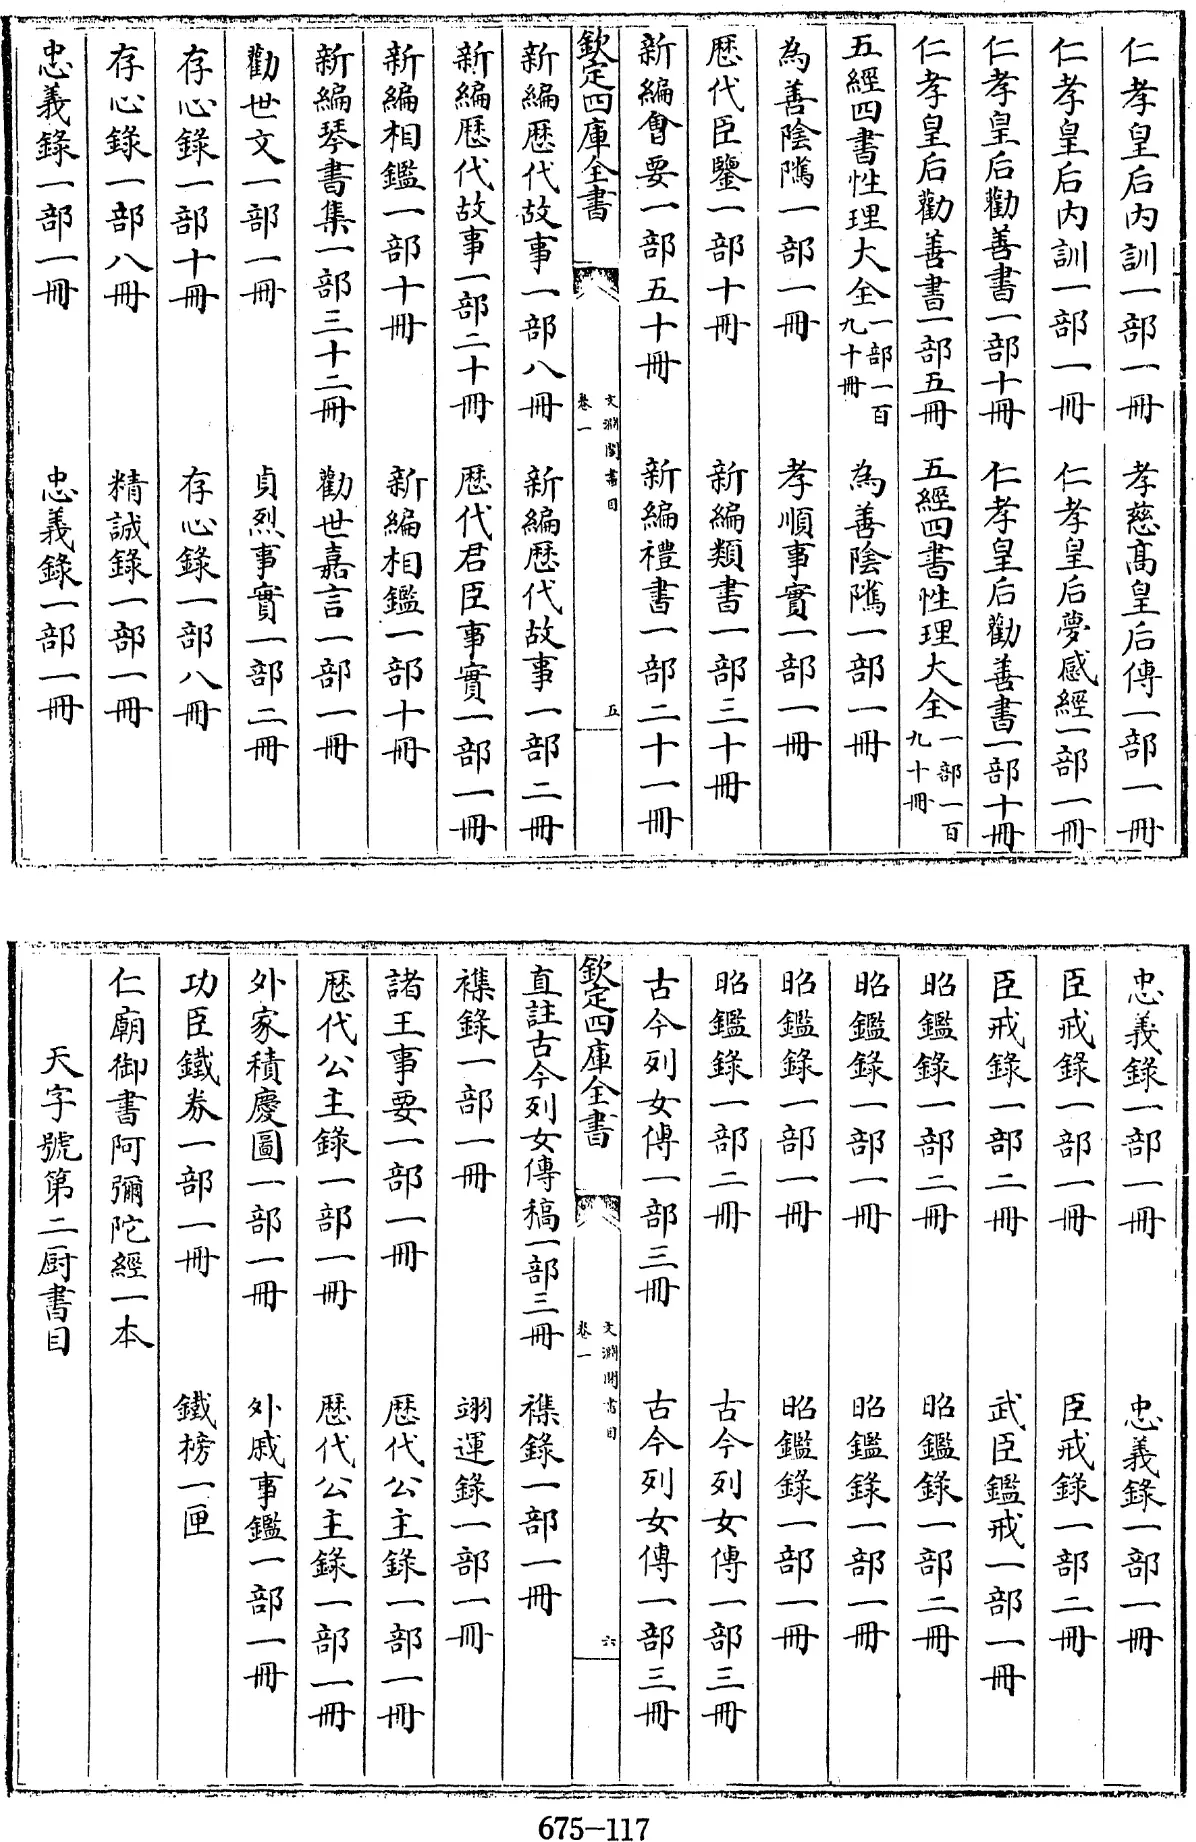 仁孝皇后内訓一部一冊　孝慈高皇后傳一部一冊
仁孝皇后内訓一部一冊　仁孝皇后夢感經一部一冊
仁孝皇后勸善書一部十冊　仁孝皇后勸善書一部十冊
仁孝皇后勸善書一部五冊　五經四書性理大全一部一百九十冊
五經四書性理大全一部一百九十冊　為善陰隲一部一冊
為善陰隲一部一冊　孝順事實一部一冊
歴代臣鑒一部十冊　新編類書一部三十冊
新編會要一部五十冊　新編禮書一部二十一冊
欽定四庫全書　文淵閣書目卷一　五
新編歴代故事一部八冊　新編歴代故事一部二冊
新編歴代故事一部二十冊　歴代君臣事實一部一冊
新編相鑑一部十冊　新編相鑑一部十冊
新編琴書集一部三十二冊　勸世嘉言一部一冊
勸世文一部一冊　貞烈事實一部二冊
存心錄一部十冊　存心錄一部八冊
存心錄一部八冊　精誠錄一部一冊
忠義錄一部一冊　忠義錄一部一冊
忠義錄一部一冊　忠義錄一部一冊
臣戒錄一部一冊　臣戒錄一部二冊
臣戒錄一部二冊　武臣鑑戒一部一冊
昭鑑錄一部二冊　昭鑑錄一部二冊
昭鑑錄一部一冊　昭鑑錄一部一冊
昭鑑錄一部一冊　昭鑑錄一部一冊
昭鑑錄一部二冊　古今列女傳一部三冊
古今列女傳一部三冊　古今列女傳一部三冊
欽定四庫全書　文淵閣書目卷一　六
直註古今列女傳稿一部三冊　襍錄一部一冊
襍錄一部一冊　翊運錄一部一冊
諸王事要一部一冊　歴代公主錄一部一冊
歴代公主錄一部一冊　歴代公主錄一部一冊
外家積慶圖一部一冊　外戚事鑑一部一冊
功臣鐵券一部一冊　鐵榜一匣
仁廟御書阿彌陀經一本
天字號第二厨書目
675-117